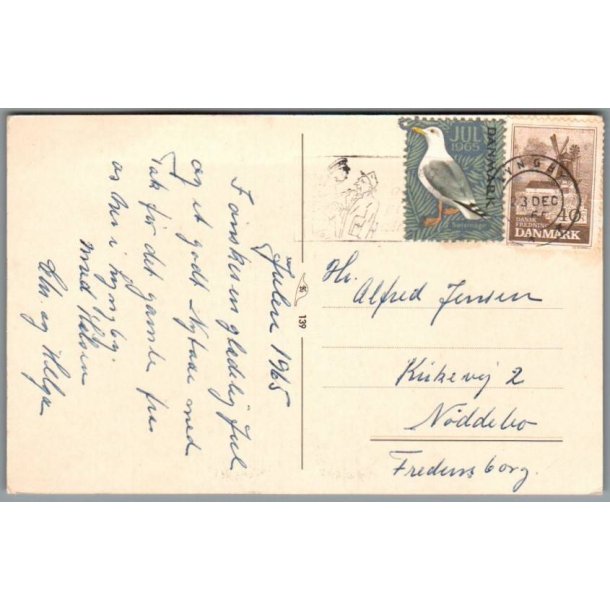 Julen 1965
F ønskes en glædelig Jul
og et godt Nytaar med
Tak for det gamle fra
os her i Lyngby.
med Hilsen
og Helga
139
JUL
1965
DANMARK
LYNGBY
3 DEC
40
DANSK
FREDNING
DANMARK
Hr.
Alfred Jensen
Kirkevej 2
Nøddebo
Fredensborg.